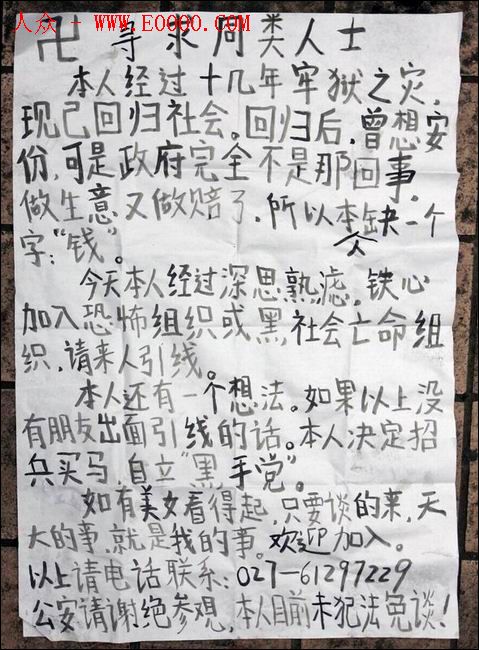 人众 - WWW.E0000.COM
卍 寻求同类人士
本人经过十几年牢狱之灾,
现已回归社会。回归后,曾想安
份,可是政府完全不是那回事。
做生意又做赔了,所以本人缺一个
字:“钱”。
今天本人经过深思熟滤,铁心
加入恐怖组织或黑社会亡命组
织,请来人引线。
本人还有一个想法。如果以上没
有朋友出面引线的话。本人决定招
兵买马,自立“黑手党”。
如有美女看得起,只要谈的来,天
大的事,就是我的事。欢迎加入。
以上请电话联系:027-61297229
公安请谢绝参观,本人目前未犯法免谈!